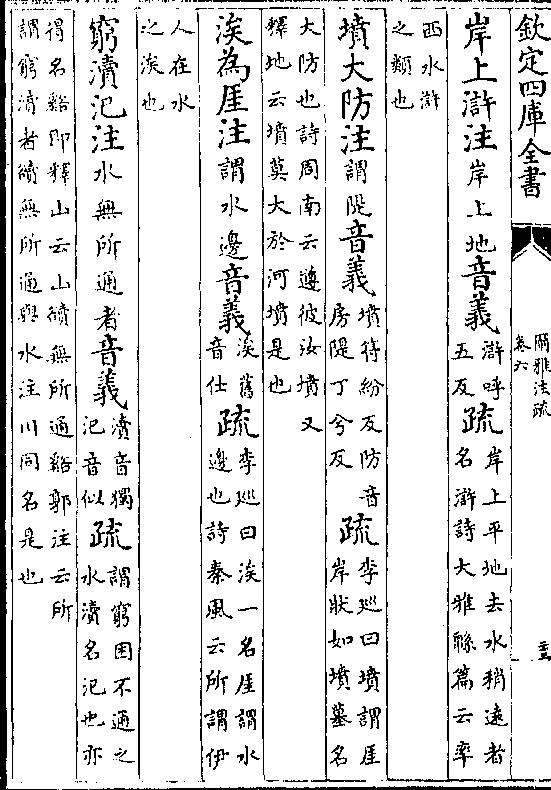 欽定四庫全書
爾雅注疏
卷六
岸上滸注岸上地音義滸呼五反疏岸上平地去水稍遠者名滸詩大雅緜篇云率
西水滸之類也
墳大防注謂隄音義墳符紛反防音房隄丁兮反疏李巡曰墳謂厓岸狀如墳墓名
大防也詩周南云遵彼汝墳又釋地云墳莫大於河墳是也
涘為厓注謂水邊音義涘舊音仕疏李巡曰涘一名厓謂水邊也詩秦風云所謂伊
人在水之涘也
窮瀆汜注水無所通者音義瀆音獨汜音似疏謂窮困不通之水瀆名汜也亦
得名谿即釋山云山䝼無所通谿郭注云所謂窮瀆者䝼無所通與水注川同名是也